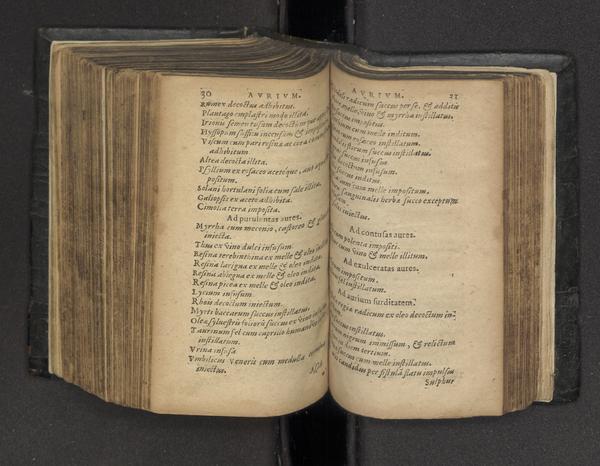 30 AVRIVM.
Rumex decoctus adhibitus.
Plantago emplastri modo illita.
Irionis sementosum decoctum
Hyssopum suffitu incensum &
Viscum cum pari resina ac cera
adhibitum.
Altea decocta illita.
Psyllium ex rosaceo acetoque, aut aqua
positum.
Solani hortulani folia cum sale illita.
Galiopsis ex aceto adhibita.
Cimolia terra imposita.
Ad purulentas aures.
Myrrha cum meconio, castoreo &
iniecta.
Thus ex vino dulci infusum.
Resina terebinthina ex melle & oleo indita
Resina larigna ex melle & oleo indita.
Resina abiegna ex melle & oleo indita.
Resina picea ex melle & oleo indita.
Lycium infusum.
Rhois decoctum iniectum.
Myrti baccarum succus instillatus.
Oleæ sylvestris foliorū succus ex vino
Taurinum fel cum caprillo humanóve
instillatum.
Vrina infusa
Vmbilicus Veneris cum medulla
iniectus.
AVRIVM. 21
radicum succus per se, & additis
melle, vino & myrrha instillatus.
impositus.
cum melle inditum.
cum rosaceo instillatum.
succus instillatus.
succus infusus.
decoctum infusum.
succus inditus.
cum melle impositum.
sanguinalis herbæ succo exceptum
iniectus.
Ad contusas aures.
cum polenta impositi.
cum vino & melle illitum.
Ad exulceratas aures.
impositum.
instillatum.
Ad aurium surditatem.
radicum ex oleo decoctum in-
succus instillatus.
nigrum immissum, & relictum
in diem tertium.
succus cum melle instillatus.
candidus per fistulā flatu impulsus
Sulphur